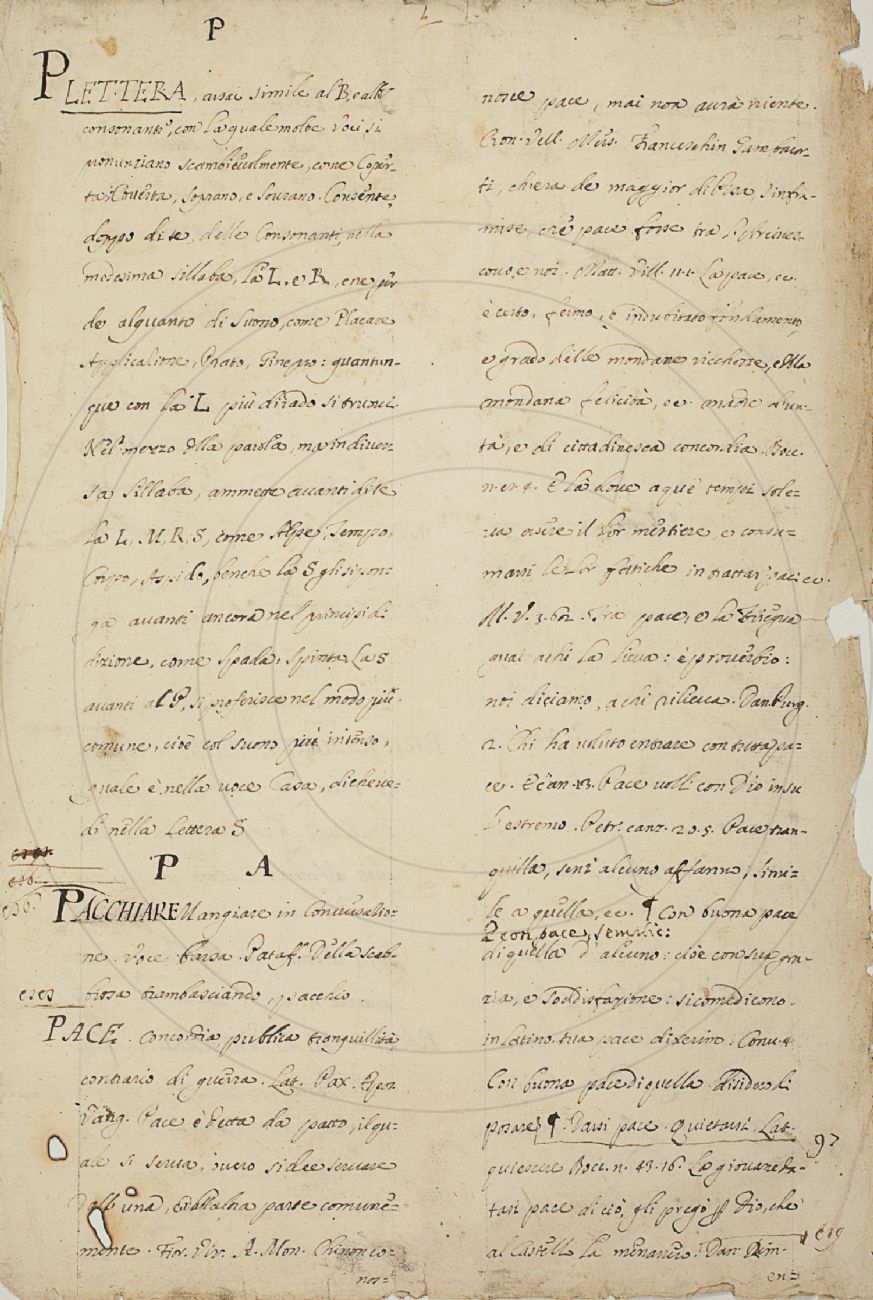 P
P LETTERA, assai simile al B, e altre
consonanti, con la quale molte voci si
pronunziano scambievolmente, come Coper-
ta; Coverta, Soprano, e Sovrano. Consente
doppo di se, delle Consonanti, nella
medesima sillaba, la L, e R, e ne per
de alquanto di suono, come Placare
Applicatione, Prato, Ginepro: quantun-
que con la L più di rado si trunci.
Nel mezzo dlla parola, ma in diver-
sa sillaba, ammette avanti di se
la L, M, R, S, come Alpe, Tempo,
Corpo, Aspido, benche la S gli si pon-
ga avanti ancora nel principi di
dizione, come Spada, Spinta. La S
avanti al P, si proferisce nel modo più
comune, cioè col suono più intenso,
quale è nella voce Casa, di che ve-
di nella Lettera S
P A
PACCHIARE Mangiare in Conversatio-
ne. Voce bassa. Pataff. Della scab-
biosa trambasciando, pacchio.
PACE. Concordia, publica tranquillità,
contrario di guerra. Lat. Pax.
Vang. Pace è detta da patto, il qu-
ale si serva, overo si dee servare
dall' una, e dall'altra parte comune-
mente. Fior. Vir. A. Mon. Chi non co-
nos=
nosce pace, mai non avrà niente.
Cron. Vell. Franceschin Gambacor-
ti, ch'era de maggior di Pisa, s'infra-
mise, che pace fosse tra
e noi. Matt. Vill. 11. 1. La pace, ec.
è certo, fermo, e indubitato fondamento,
e grado delle mondane ricchezze, e dlla
mondana felicità, ec. madre d'un-
tà, e di cittadinesca concordia. Bocc.
n. 8. E là dove a què tempi sole-
va essere il lor mestiere, e consu-
marsi le lor fatiche in trattar paci ec.
M. V. 3. 602. Tra pace, e la Triegua
guai a chi la lieva: è proverbio:
noi diciamo, a chi rilieva. Dan. Purg.
2. Chi ha voluto entrare con tutta pa-
ce. E can. 13. Pace volli con Dio in su
l'estremo. Petr. canz. 20. 5. Pace tran-
quilla, senz' alcuno affanno; Simi-
le a quella, ec. ¶ Con buona pace
2 con pace, semplic:
di quella d' alcuno: cioè con sua gra-
zia, e soddisfazione: si come dicono.
in Latino. tua pace dixerim: Conv. 4.
Con buona pace di quella
posare. ¶. Darsi pace. Quietarsi. Lat.
97
quiescere Bocc. n. 43. 16. La giovane da-
tasi pace di ciò, gli pregò p Dio, che
al Castello la menasero. Dan. Rim.
en=